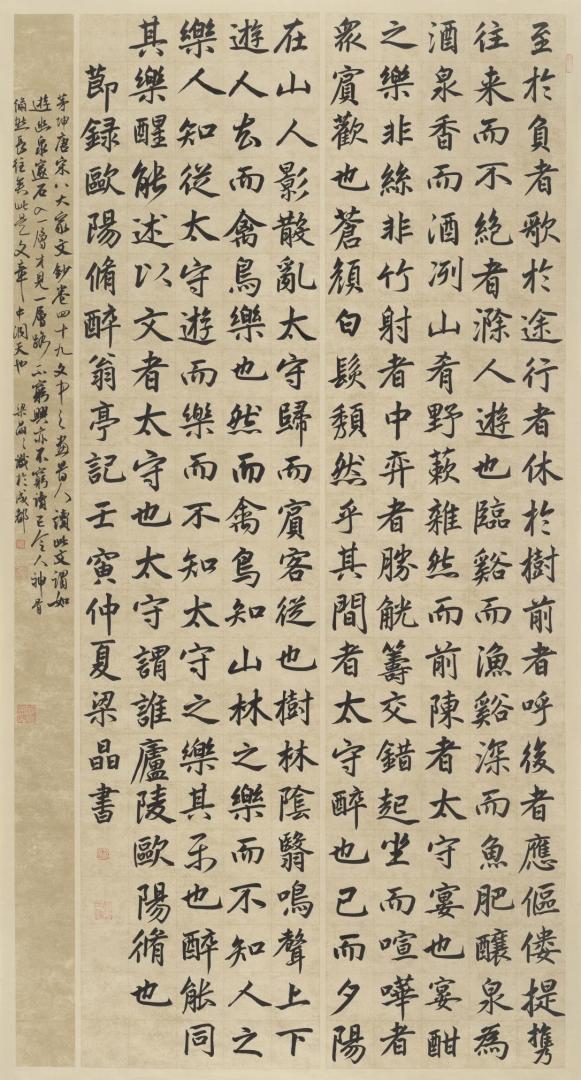 至於負者歌於途行者休於樹前者呼後者應傴僂提携
往来而不絕者滁人遊也臨谿而漁谿深而魚肥釀泉為
酒泉香而酒洌山肴野蔌雜然而前陳者太守宴也宴酣
之樂非絲非竹射者中弈者勝觥籌交錯起坐而喧嘩者
眾賓歡也蒼顏白髮頹然乎其間者太守醉也已而夕陽
在山人影散亂太守歸而賓客從也樹林陰翳鳴聲上下
遊人去而禽鳥樂也然而禽鳥知山林之樂而不知人之
樂人知從太守遊而樂而不知太守之樂其乐也醉能同
其樂醒能述以文者太守也太守謂誰廬陵歐陽脩也
節録歐陽脩醉翁亭記壬寅仲夏梁晶書
茅坤唐宋八大家文鈔卷四十九文中之畫昔人讀此文謂如
遊幽泉邃石入一層才見一層路不窮興亦不窮讀已令人神骨
翛然長往矣此是文章中洞天也 梁晶識於成都